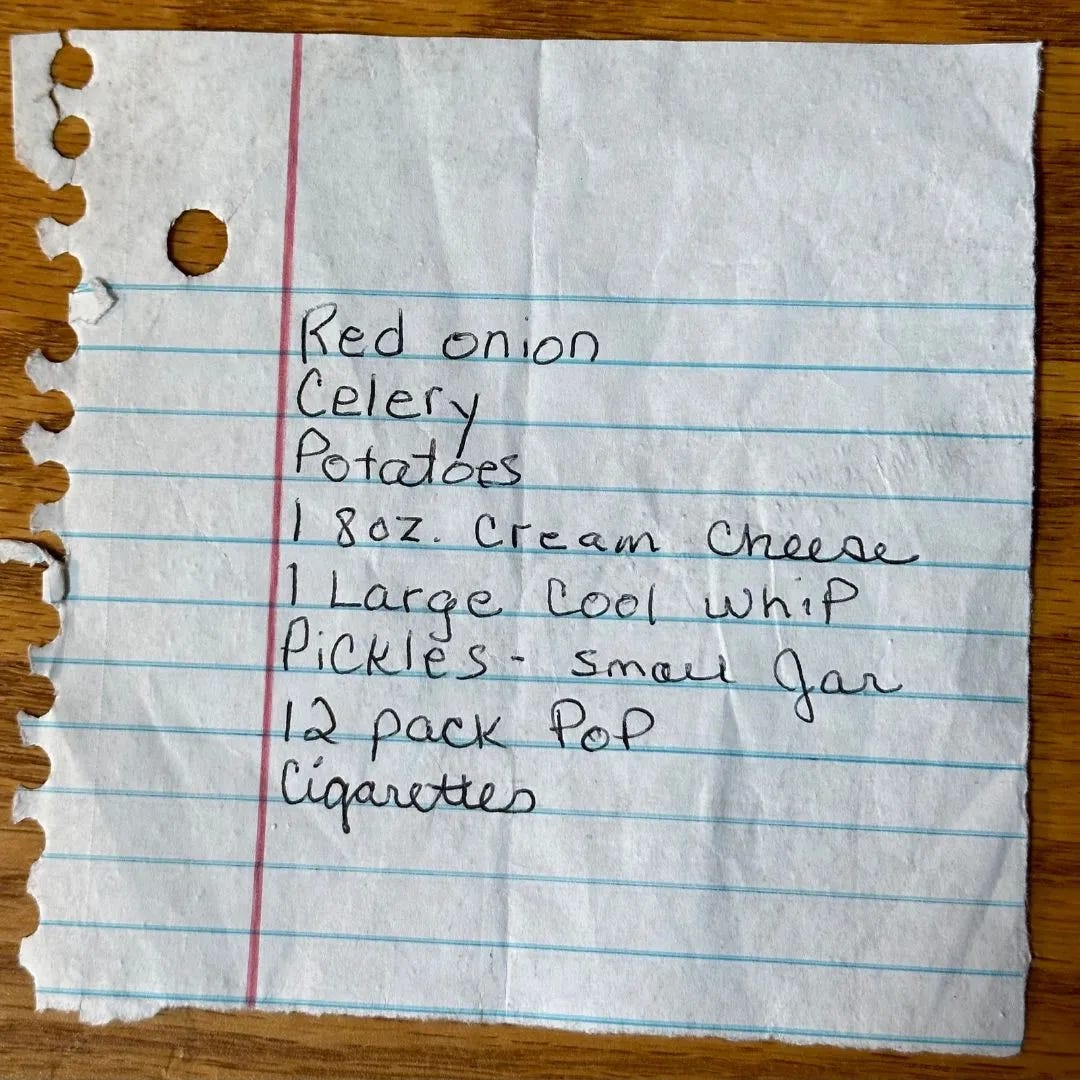 Red onion
Celery
Potatoes
1 8oz. Cream Cheese
1 Large Cool Whip
Pickles - small Jar
12 pack Pop
Cigarettes